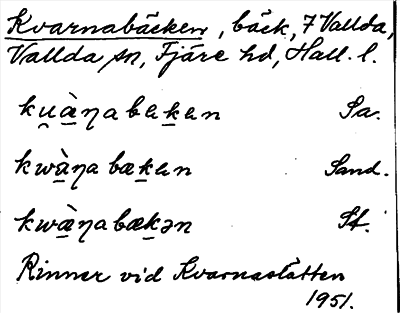 Kvarnabäcken, bäck, 7 Vallda,
Vallda sn, Fjäre hd, Hall. l.
ku̯ā̀ɳabɐḵɐn Sa.
kwā̀ɳabæḵɐn Sand.
kwā̀ɳabæḵən St.
Rinner vid Kvarnaslätten
1951.